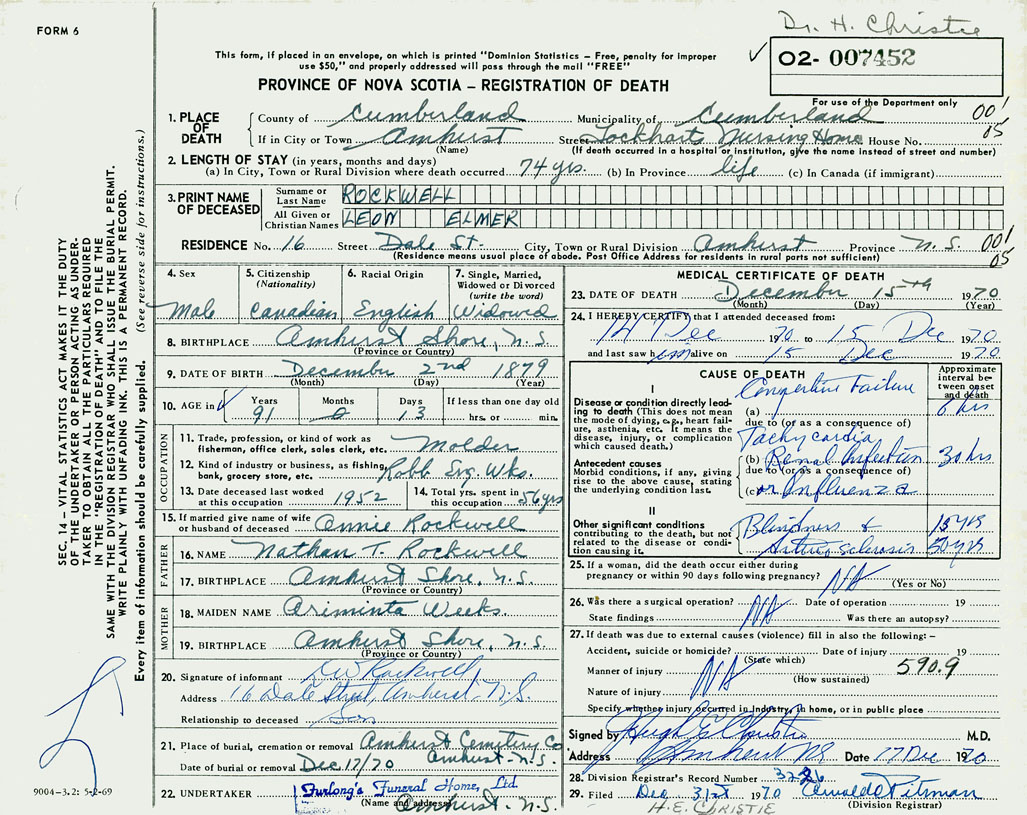 FORM 6
Dr. H. Christie
This form, if placed in an envelope, on which is printed "Dominion Statistics – Free, penalty for improper
use $50," and properly addressed will pass through the mail "FREE"
✓ 02- 007452
PROVINCE OF NOVA SCOTIA – REGISTRATION OF DEATH
For use of the Department only
1. PLACE OF DEATH County of Cumberland Municipality of Cumberland 001
If in City or Town Amherst Street Lockharts Nursing Home House No. 05
(Name) (If death occurred in a hospital or institution, give the name instead of street and number)
2. LENGTH OF STAY (in years, months and days)
(a) In City, Town or Rural Division where death occurred 74 yrs. (b) In Province life (c) In Canada (if immigrant)
3. PRINT NAME OF DECEASED Surname or Last Name ROCKWELL
All Given or Christian Names LEON ELMER
RESIDENCE No. 16 Street Dale St. City, Town or Rural Division Amherst Province N.S. 001
(Residence means usual place of abode. Post Office Address for residents in rural parts not sufficient) 05
SEC. 14 – VITAL STATISTICS ACT MAKES IT THE DUTY
OF THE UNDERTAKER OR PERSON ACTING AS UNDER-
TAKER TO OBTAIN ALL THE PARTICULARS REQUIRED
IN THE "REGISTRATION OF DEATH" AND TO FILE THE
SAME WITH THE DIVISION REGISTRAR WHO SHALL ISSUE THE BURIAL PERMIT.
WRITE PLAINLY WITH UNFADING INK. THIS IS A PERMANENT RECORD.
Every item of information should be carefully supplied. (See reverse side for instructions.)
4. Sex Male
5. Citizenship (Nationality) Canadian
6. Racial Origin English
7. Single, Married, Widowed or Divorced (write the word) Widowed
8. BIRTHPLACE Amherst Shore, N.S.
(Province or Country)
9. DATE OF BIRTH December 2nd 1879
(Month) (Day) (Year)
10. AGE in Years 91 Months 0 Days 13 If less than one day old hrs. or min.
OCCUPATION
11. Trade, profession, or kind of work as
fisherman, office clerk, sales clerk, etc. Molder
12. Kind of industry or business, as fishing,
bank, grocery store, etc. Robb Eng. Wks.
13. Date deceased last worked
at this occupation 1952
14. Total yrs. spent in
this occupation 56 yrs
15. If married give name of wife
or husband of deceased Annie Rockwell
FATHER
16. NAME Nathan T. Rockwell
17. BIRTHPLACE Amherst Shore, N.S.
(Province or Country)
MOTHER
18. MAIDEN NAME Ariminta Weeks
19. BIRTHPLACE Amherst Shore, N.S.
(Province or Country)
20. Signature of informant Rockwell
Address 16 Dale Street, Amherst N.S.
Relationship to deceased Son
21. Place of burial, cremation or removal Amherst Cemetery Co
Amherst - N.S.
Date of burial or removal Dec 17/70
22. UNDERTAKER Furlong's Funeral Home, Ltd.
(Name and address) Amherst - N.S.
9004–3.2: 5-2-69
MEDICAL CERTIFICATE OF DEATH
23. DATE OF DEATH December 15th 1970
(Month) (Day) (Year)
24. I HEREBY CERTIFY that I attended deceased from:
14 Dec 1970 to 15 Dec 1970
and last saw him alive on 15 Dec 1970
CAUSE OF DEATH
Approximate interval between onset and death
I
Disease or condition directly lead-
ing to death (This does not mean
the mode of dying, e.g., heart fail-
ure, asthenia, etc. It means the
disease, injury, or complication
which caused death.)
Congestive Failure
(a) 6 hrs
due to (or as a consequence of)
Tachycardia
Antecedent causes
Morbid conditions, if any, giving
rise to the above cause, stating
the underlying condition last.
(b) Renal Infection 30 hrs
due to (or as a consequence of)
(c) or Influenza
II
Other significant conditions
contributing to the death, but not
related to the disease or condi-
tion causing it.
Blindness & 15 yrs
Arteriosclerosis 30 yrs
25. If a woman, did the death occur either during
pregnancy or within 90 days following pregnancy? NA
(Yes or No)
26. Was there a surgical operation? NA Date of operation 19
State findings Was there an autopsy?
27. If death was due to external causes (violence) fill in also the following: –
Accident, suicide or homicide? Date of injury 19
(State which)
Manner of injury NA 590.9
(How sustained)
Nature of injury
Specify whether injury occurred in industry, in home, or in public place
Signed by Hugh E Christie M.D.
Address Amherst NS Date 17 Dec 1970
28. Division Registrar's Record Number 3226
29. Filed Dec 31st 1970 Pitman
(Division Registrar)
H.E. CHRISTIE